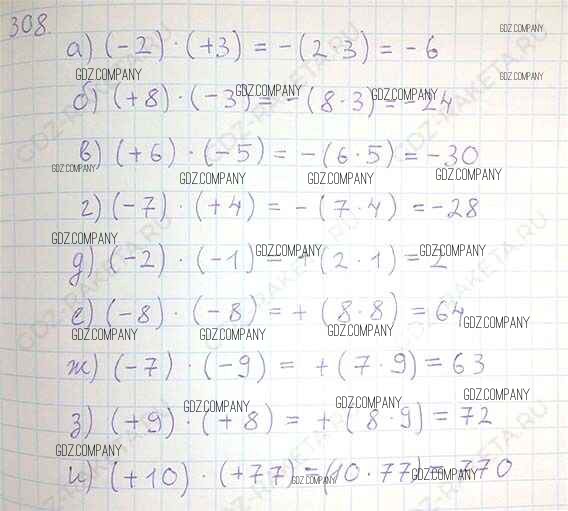 308.
а) (-2) · (+3) = -(2·3) = -6
б) (+8) · (-3) = -(8·3) = -24
в) (+6) · (-5) = -(6·5) = -30
г) (-7) · (+4) = -(7·4) = -28
д) (-2) · (-1) = +(2·1) = 2
е) (-8) · (-8) = +(8·8) = 64
ж) (-7) · (-9) = +(7·9) = 63
з) (+9) · (+8) = +(8·9) = 72
и) (+10) · (+77) = (10·77) = 770
GDZ.COMPANY
GDZ-RAKETA.RU